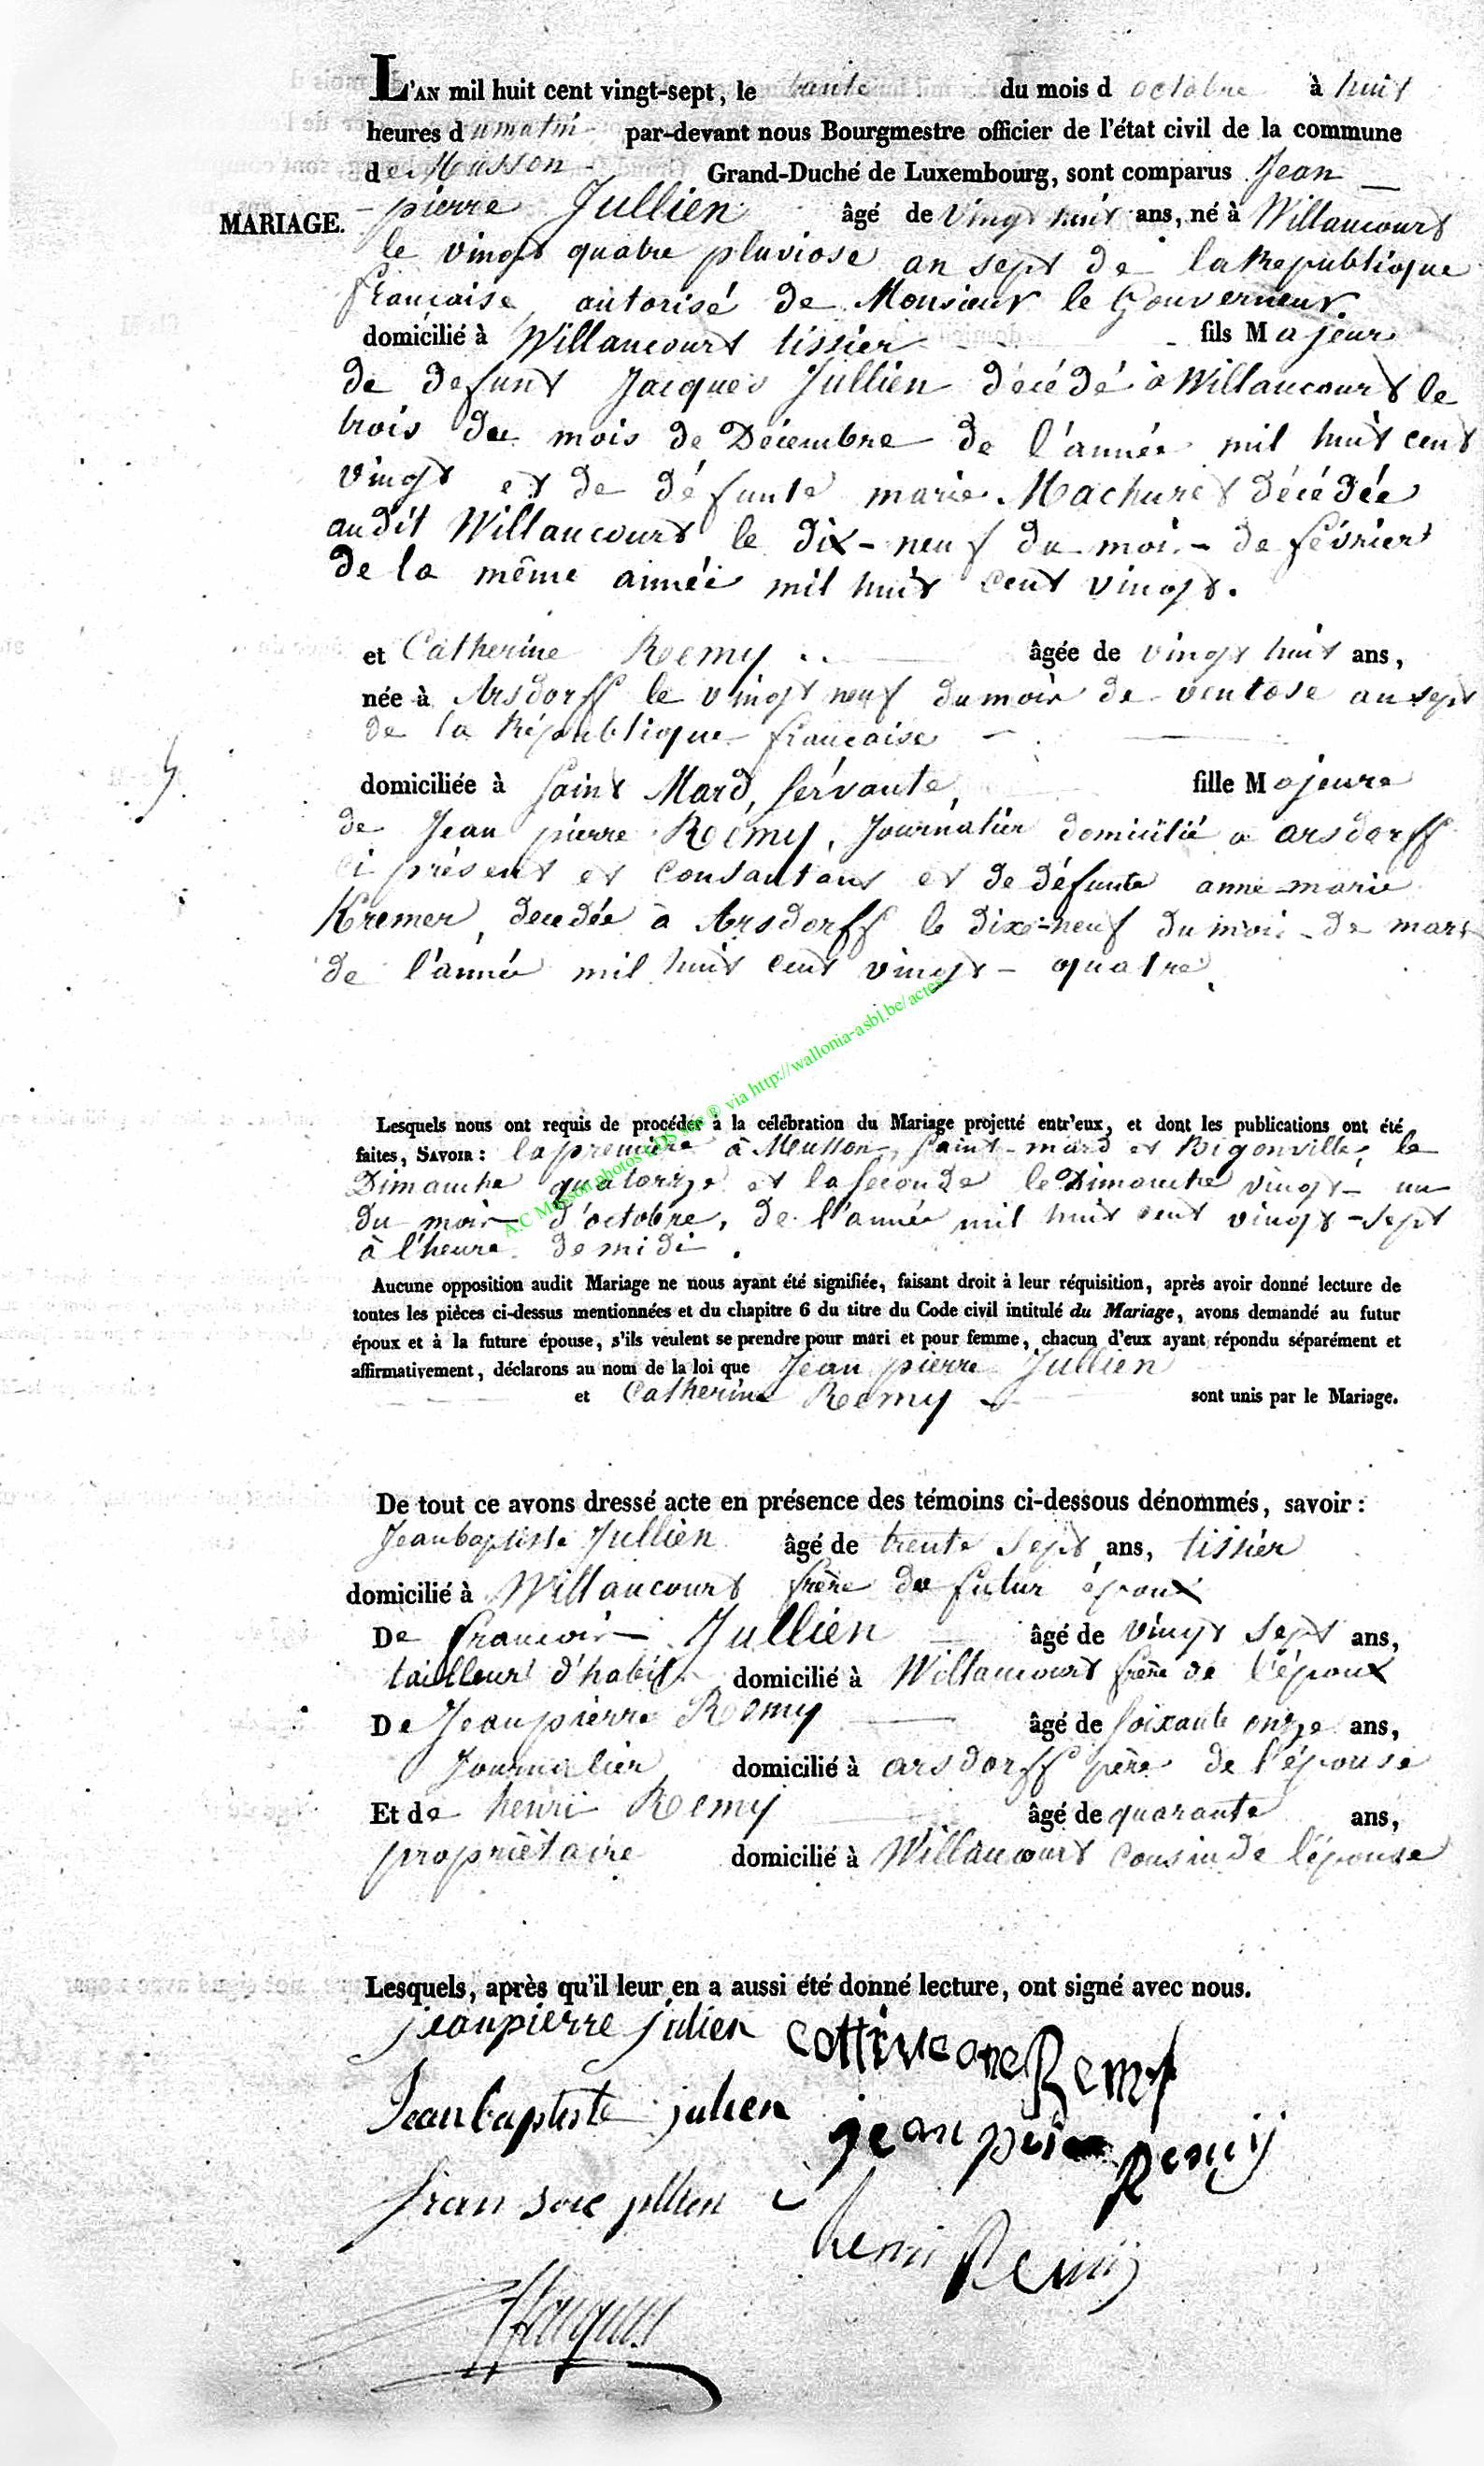 L'AN mil huit cent vingt-sept, le trente du mois d octobre à huit
heures dumatin par-devant nous Bourgmestre officier de l'état civil de la commune
de Musson Grand-Duché de Luxembourg, sont comparus Jean
MARIAGE. pierre Jullien âgé de vingt huit ans, né à Willancourt
le vingt quatre pluviose an sept de la Republique
francaise, autorisé de Monsieur le Gouverneur
domicilié à Willancourt tissier fils Majeur
de defunt Jacques Jullien décédé à Willancourt le
trois du mois de Décembre de l'année mil huit cent
vingt et de défunte marie Machuret décédée
audit Willancourt le dix-neuf du mois de février
de la même année mil huit cent vingt.
et Catherine Remy âgée de vingt huit ans,
née à Arsdorff le vingt neuf du mois de ventose an sept
de la République francaise
domiciliée à Saint Mard, servante, fille Majeure
de Jean pierre Remy, Journalier domicilié a arsdorff
ci présent et consantant et de défunte anne-marie
Kremer, decedée à Arsdorff le dixe-neuf du mois de mars
de l'année mil huit cent vingt-quatre.
A.C Musson photos via http://wallonia-asbl.be/actes
Lesquels nous ont requis de procéder à la célébration du Mariage projetté entr'eux, et dont les publications ont été
faites, SAVOIR: la premiere à Musson, Saint-mard et Bigonville, le
Dimanche quatorze et la seconde le Dimanche vingt-un
du mois d'octobre, de l'année mil huit cent vingt-sept
à l'heure de midi.
Aucune opposition audit Mariage ne nous ayant été signifiée, faisant droit à leur réquisition, après avoir donné lecture de
toutes les pièces ci-dessus mentionnées et du chapitre 6 du titre du Code civil intitulé du Mariage, avons demandé au futur
époux et à la future épouse, s'ils veulent se prendre pour mari et pour femme, chacun d'eux ayant répondu séparément et
affirmativement, déclarons au nom de la loi que Jean pierre Jullien
et Catherine Remy sont unis par le Mariage.
De tout ce avons dressé acte en présence des témoins ci-dessous dénommés, savoir:
Jeanbaptiste Jullien âgé de trente sept ans, tissier
domicilié à Willancourt frère du futur époux
De francois Jullien âgé de vingt sept ans,
tailleur d'habit domicilié à Willancourt frère de l'époux
De Jeanpierre Remy âgé de soixante onze ans,
Journalier domicilié à arsdorff père de l'épouse
Et de henri Remy âgé de quarante ans,
propriétaire domicilié à Willancourt cousin de l'épouse
Lesquels, après qu'il leur en a aussi été donné lecture, ont signé avec nous.
jeanpierre julien Remy
Jeanbaptiste julien jean Remij
fran sois jullien
henri Remij